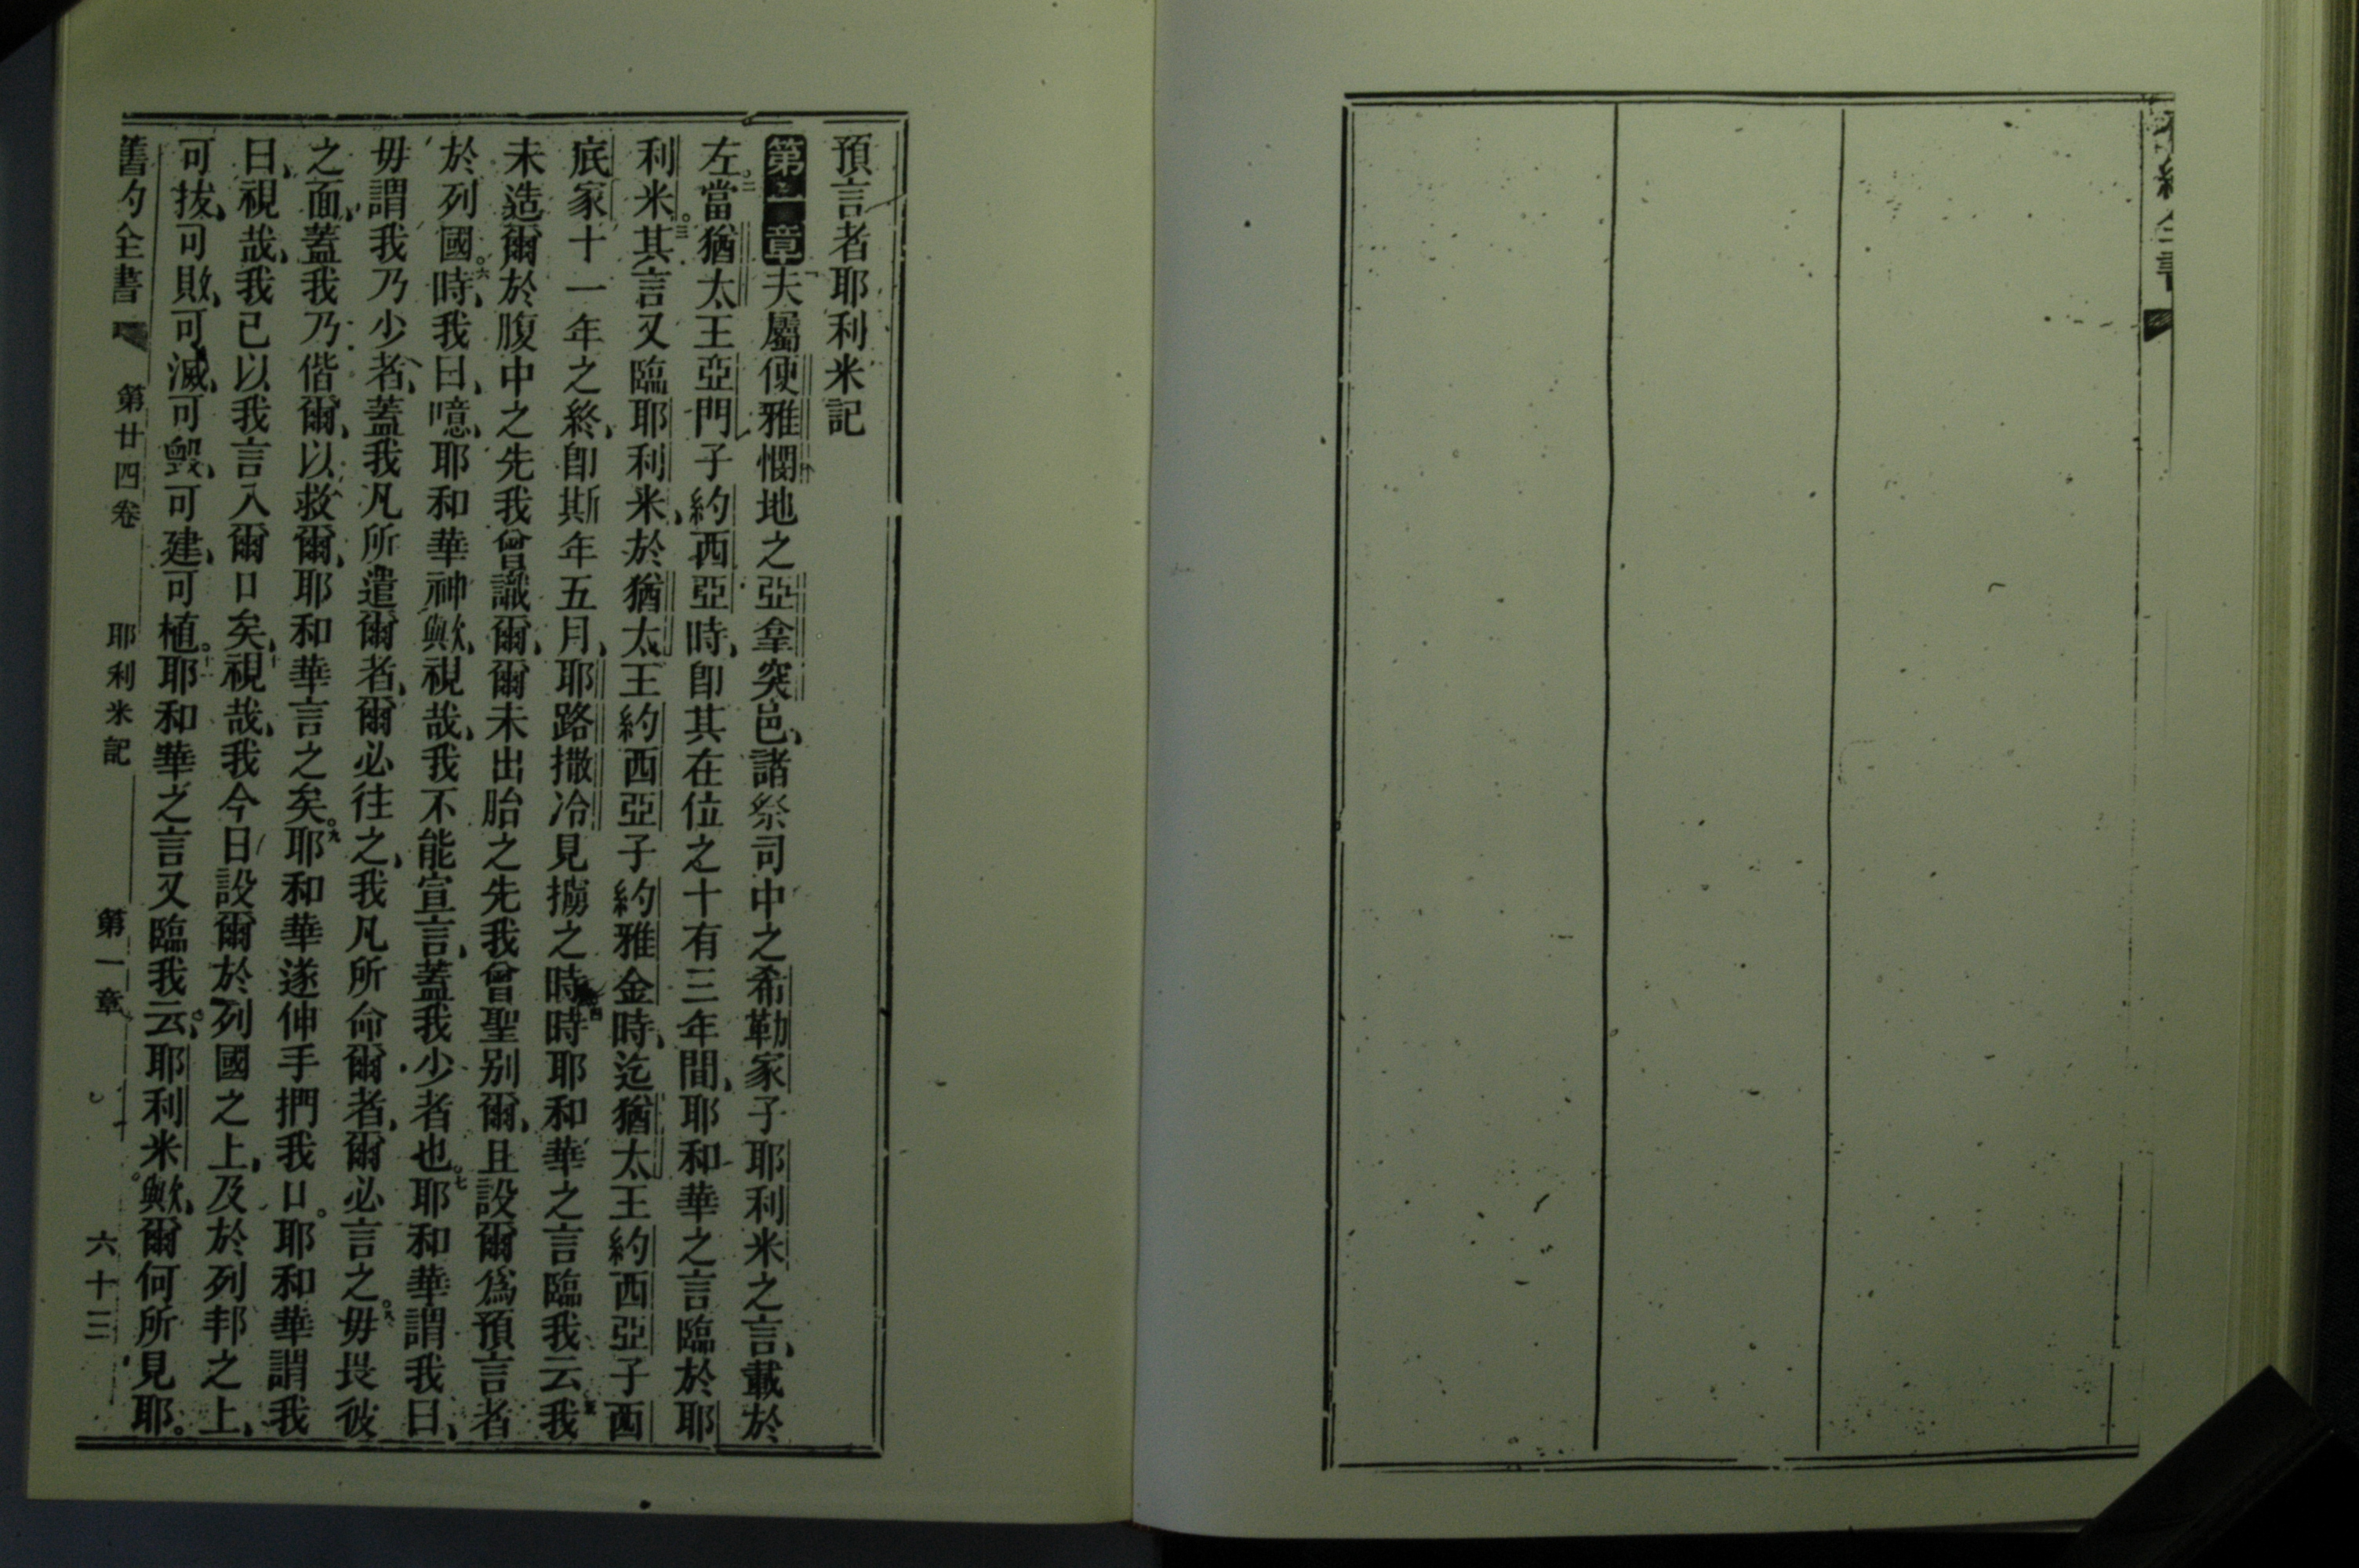 全書
預言者耶利米記
第一章夫屬便雅憫地之亞拿突邑、諸祭司中之希勒家子耶利米之言、載於
左。二當猶太王亞門子約西亞時、卽其在位之十有三年間、耶和華之言臨於耶
利米。三其言又臨耶利米、於猶太王約西亞子約雅金時、迄猶太王約西亞子西
底家十一年之終、卽斯年五月、耶路撒冷見擄之時四時耶和華之言臨我云五我
未造爾於腹中之先我曾識爾、爾未出胎之先我曾聖别爾、且設爾爲預言者
於列國。六時、我曰、噫、耶和華神歟、視哉、我不能宣言、蓋我少者也。七耶和華謂我曰、
毋謂我乃少者、蓋我凡所遣爾者、爾必往之、我凡所命爾者、爾必言之。八毋畏彼
之面、蓋我乃偕爾、以救爾、耶和華言之矣。九耶和華遂伸手捫我口。耶和華謂我
曰、視哉、我已以我言入爾口矣、十視哉、我今日設爾於列國之上、及於列邦之上、
可拔、可敗、可滅、可毀、可建、可植。十一耶和華之言又臨我云、耶利米歟、爾何所見耶。
舊約全書 第廿四卷 耶利米記 第一章 六十三